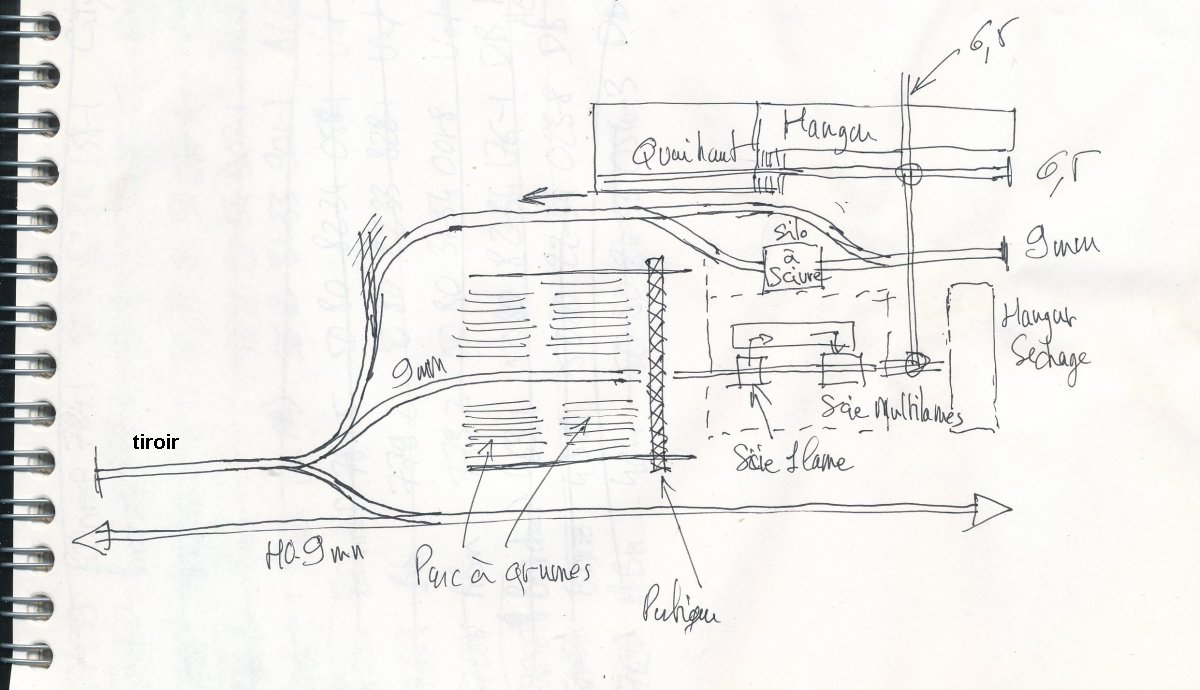 6,5
Hangar
Quai haut
6,5
Silo
à
Sciure
9mm
Hangar
Séchage
9mm
Scie Multilames
tiroir
Scie 1 lame
H0-9mm
Parc à grumes
Portique